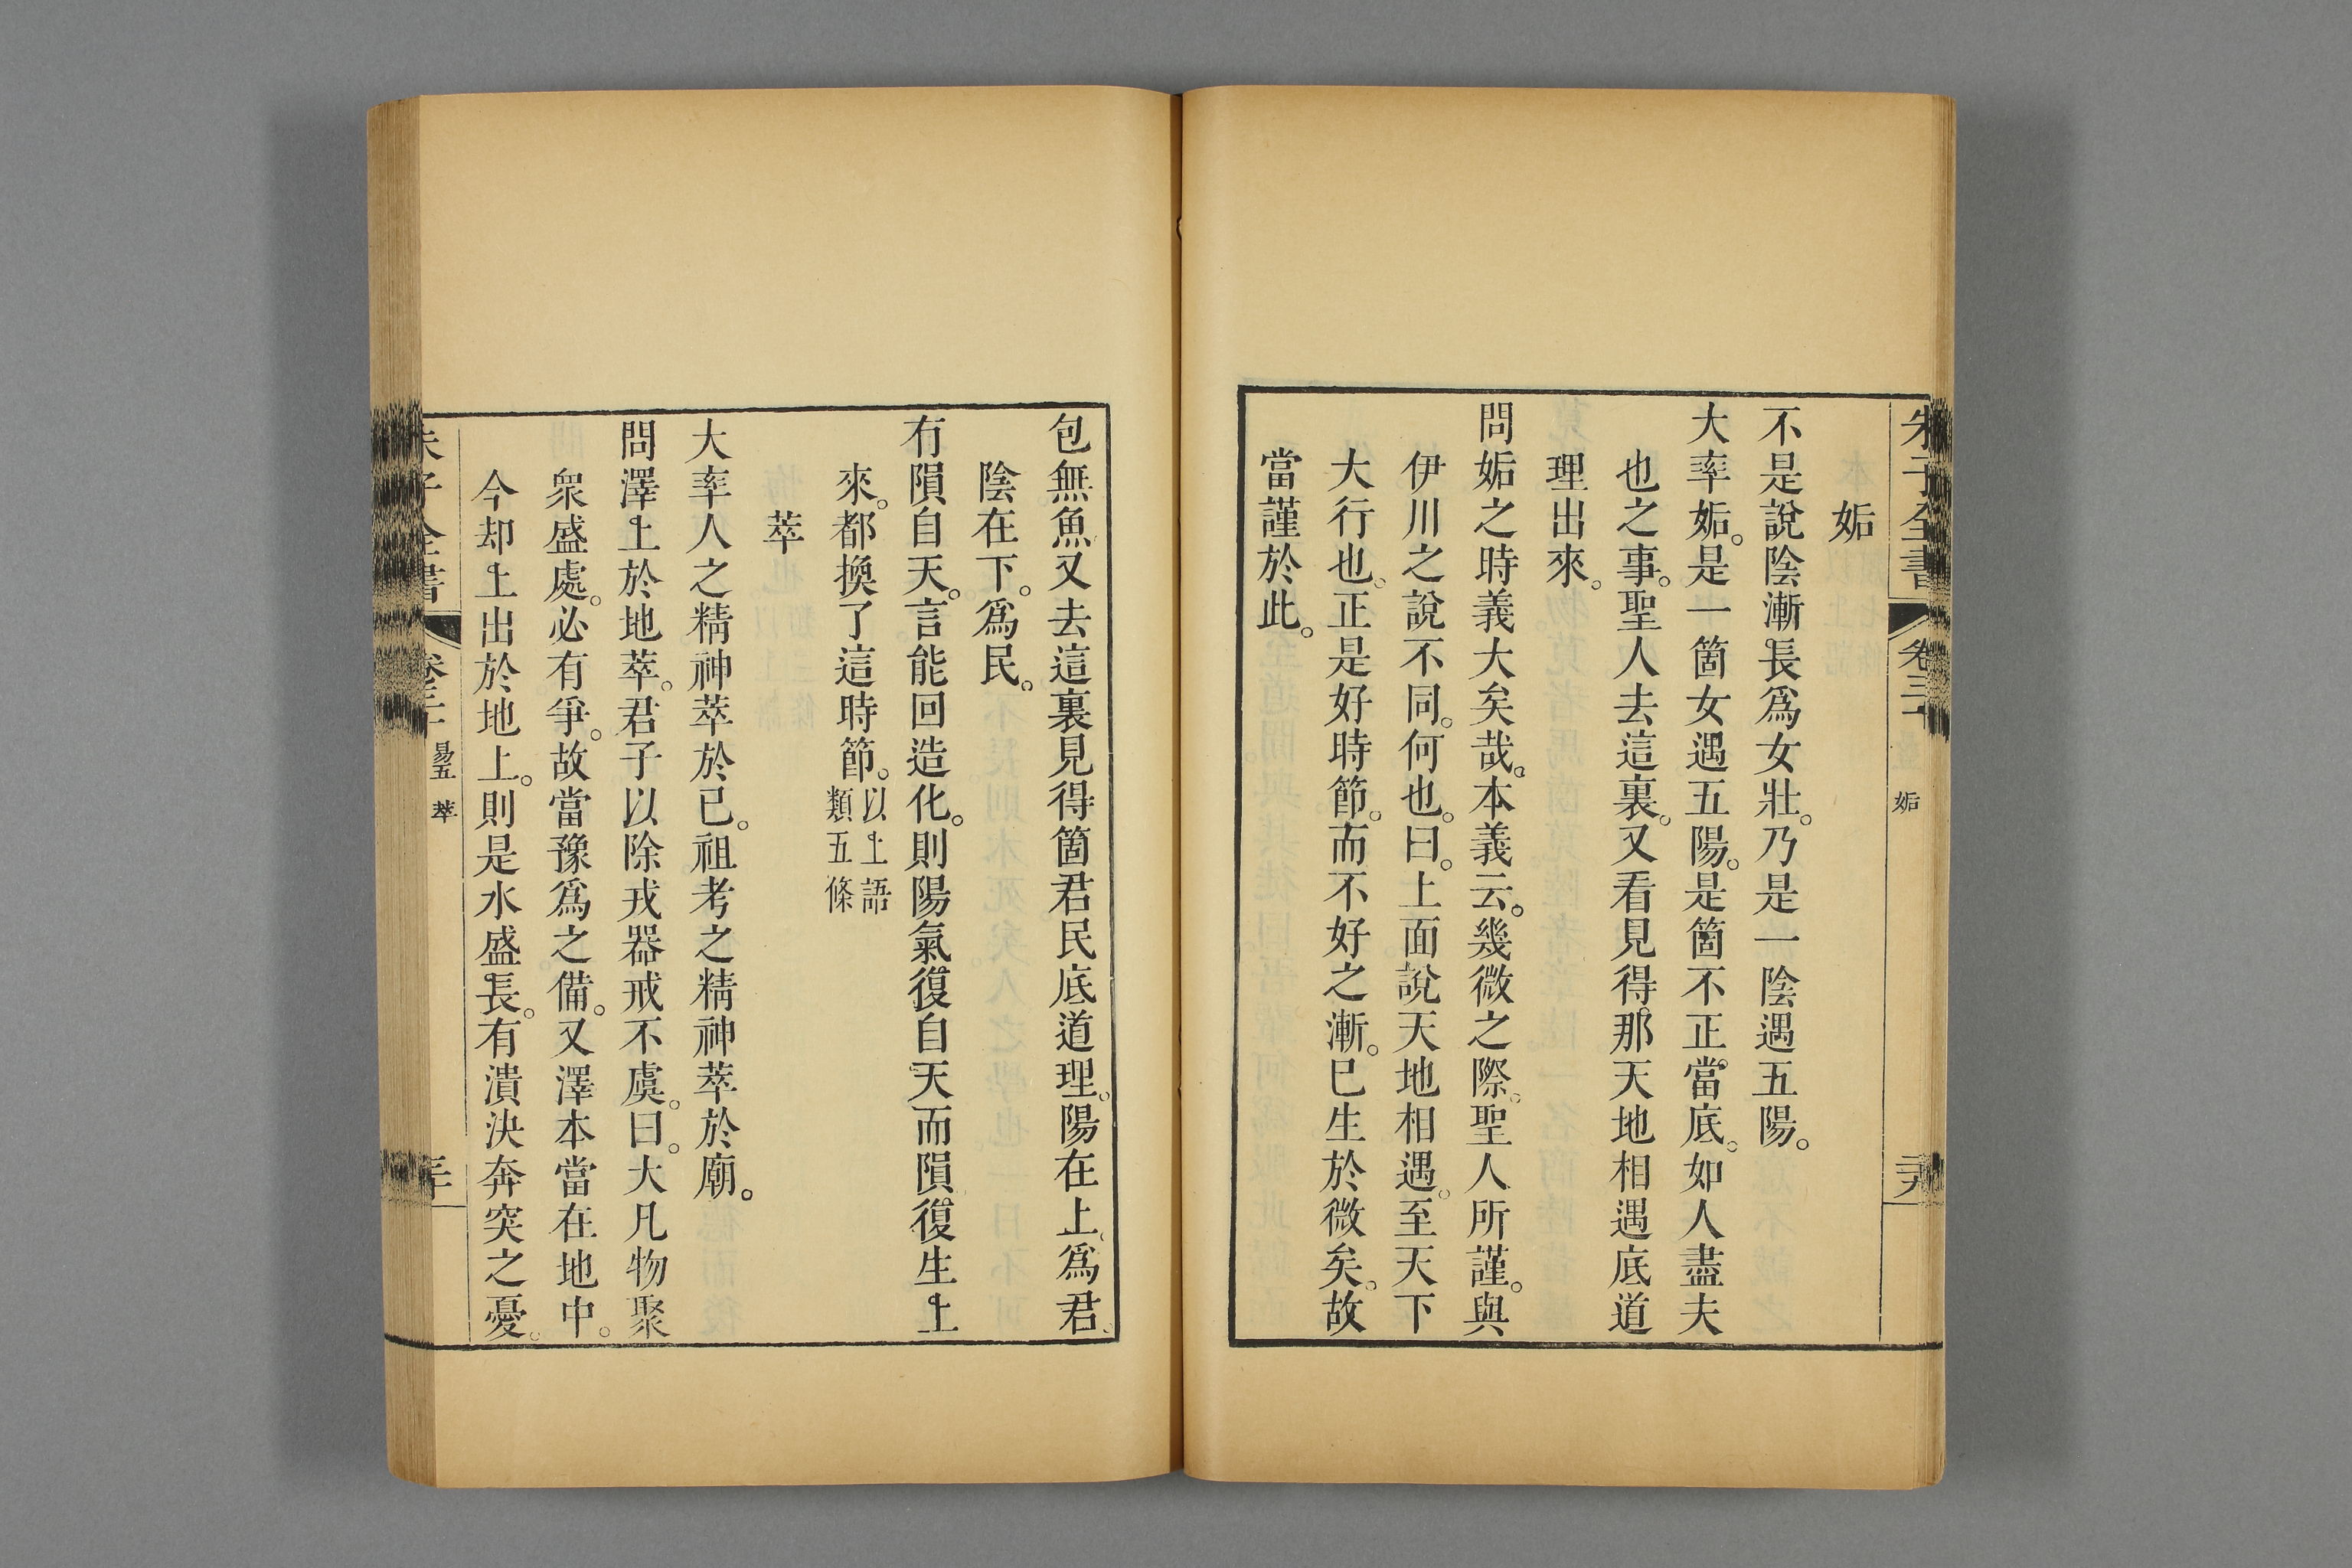 朱子全書 卷三十 姤 二十九
姤
不是說陰漸長爲女壯。乃是一陰遇五陽。
大率姤。是一箇女遇五陽。是箇不正當底。如人盡夫
也之事。聖人去這裏。又看見得那天地相遇底道
理出來。
問姤之時義大矣哉。本義云。幾微之際。聖人所謹。與
伊川之說不同。何也。曰。上面說天地相遇。至天下
大行也。正是好時節。而不好之漸。巳生於微矣。故
當謹於此。
包無魚又去這裏見得箇君民底道理。陽在上。爲君。
陰在下。爲民。
有隕自天。言能回造化。則陽氣復自天而隕。復生上
來。都換了這時節。以上語
類五條
萃
大率人之精神萃於已。祖考之精神萃於廟。
問澤上於地萃。君子以除戎器戒不虞。曰。大凡物聚
衆盛處。必有爭。故當豫爲之備。又澤本當在地中。
今却上出於地上。則是水盛長。有潰決奔突之憂。
朱子全書 卷三十 易五 萃 三十